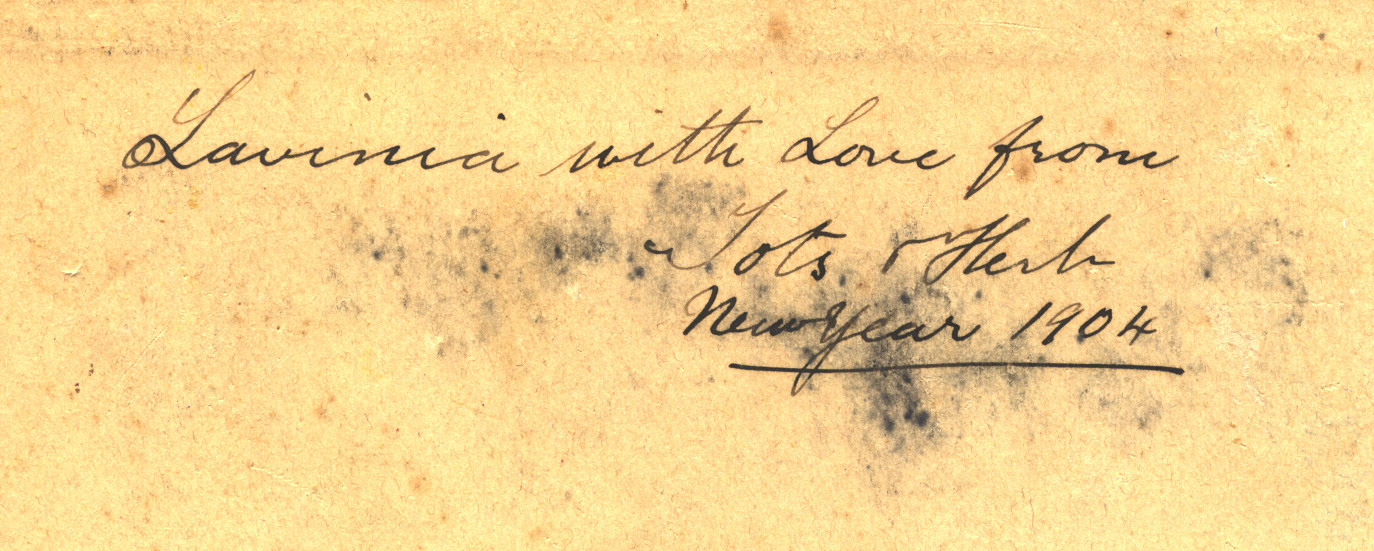 Lavinia with Love from
Tots & Herb
New Year 1904